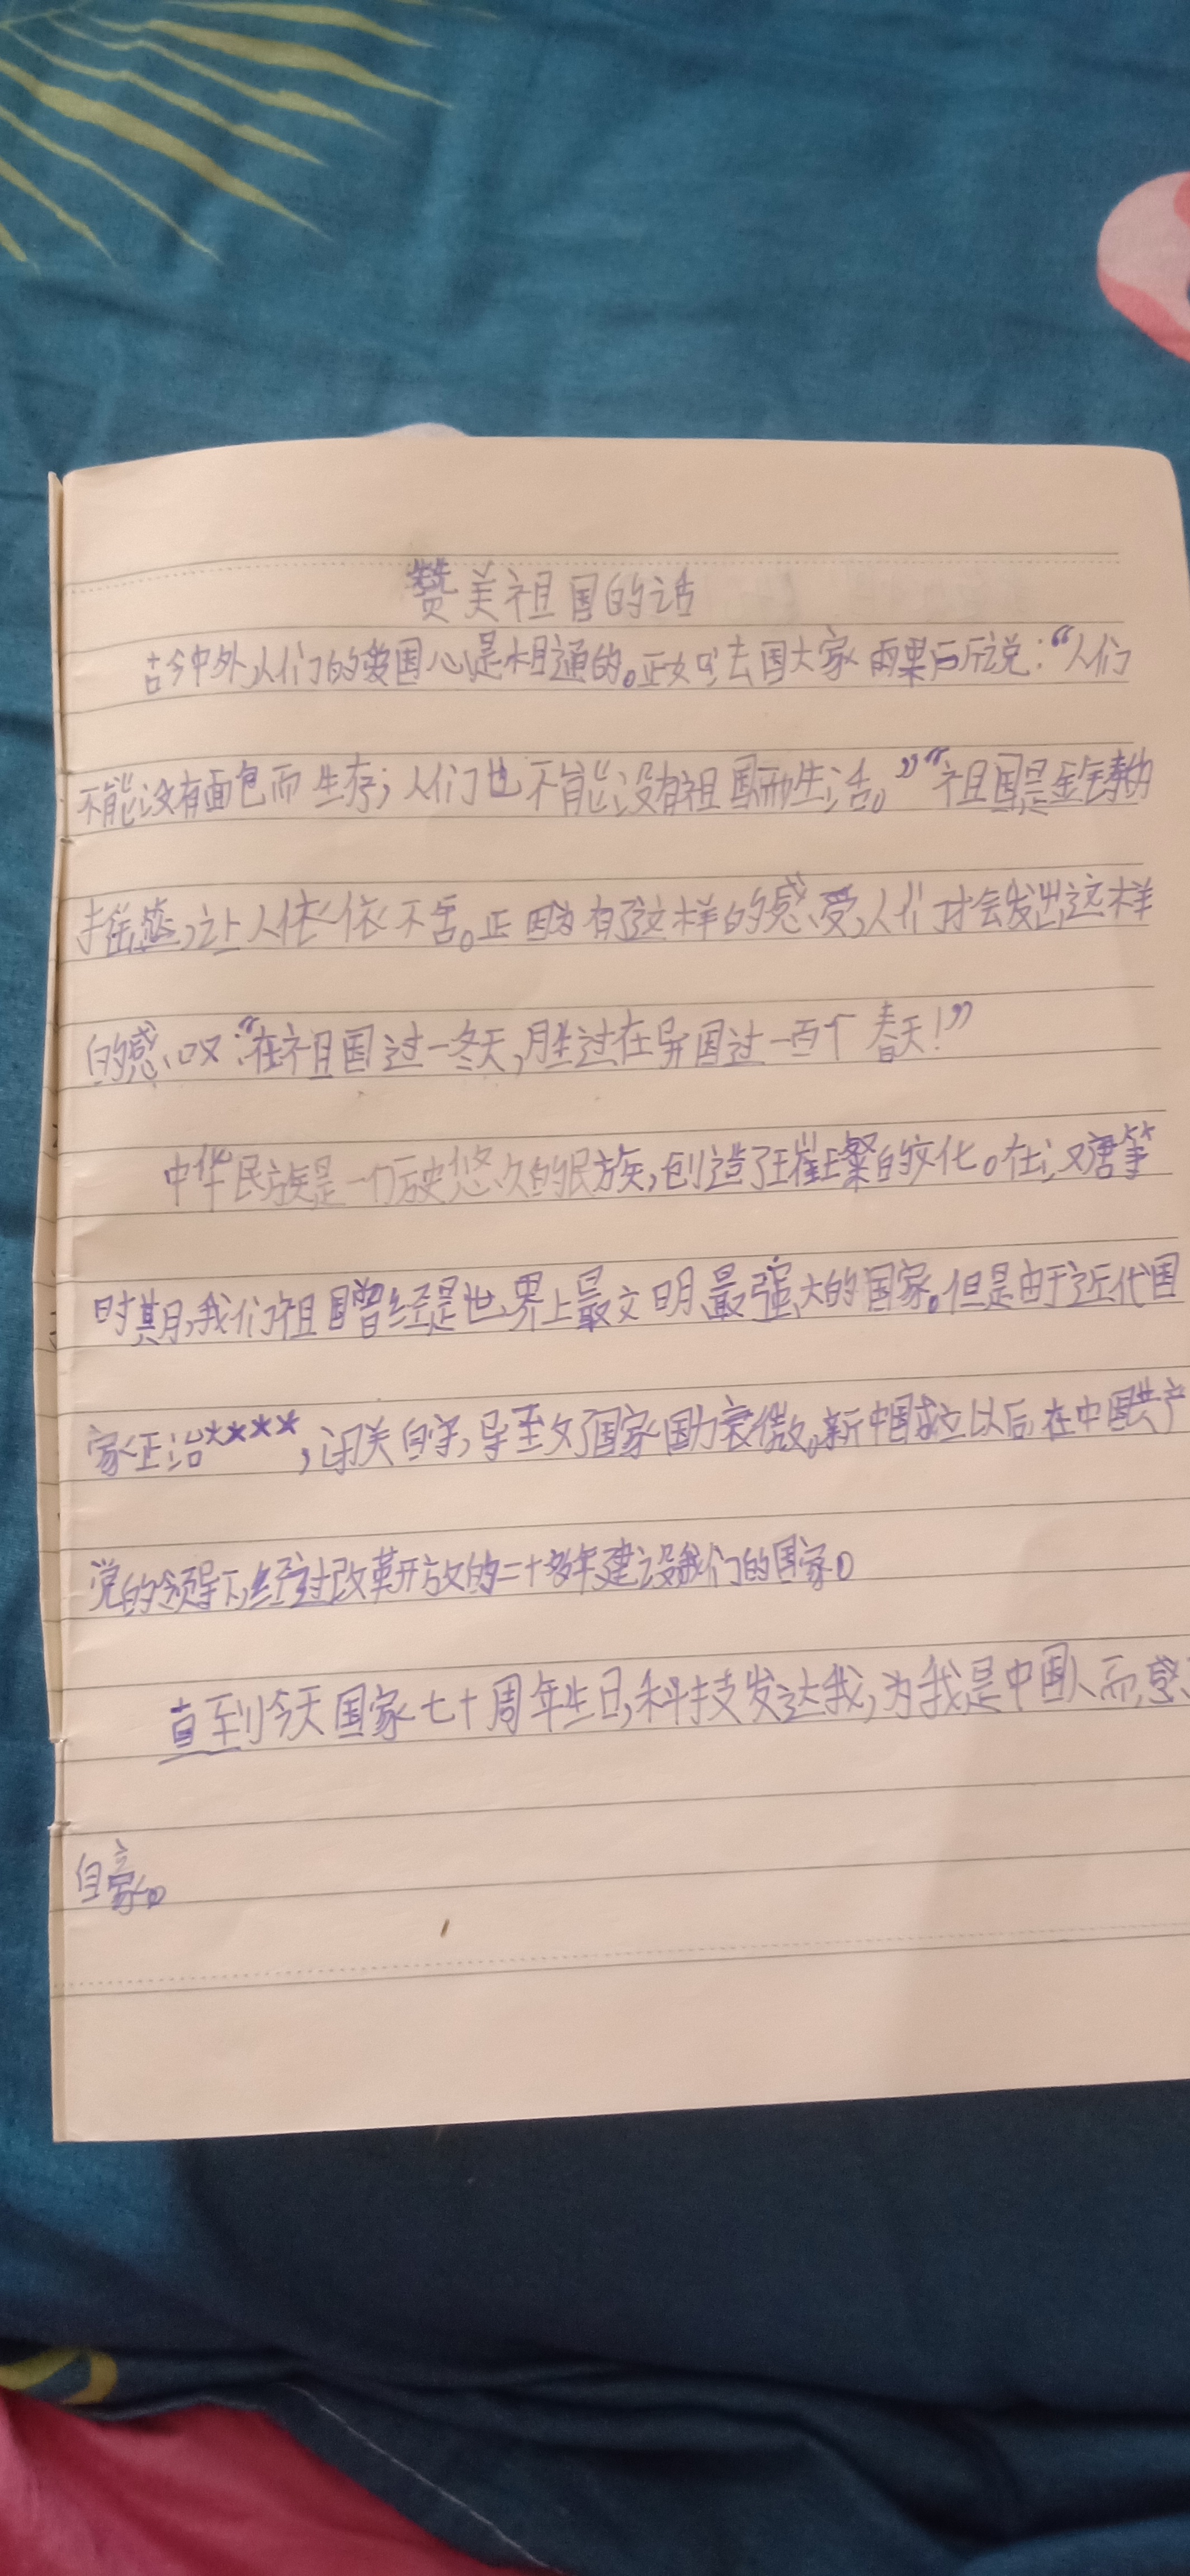 赞美祖国的话
古今中外,人们的爱国心是相通的。正如法国大家雨果后所说:“人们
不能没有面包而生存;人们也不能没有祖国而生活。”“祖国是
摇篮,让人依依不舍。正因为有了这样的感受,人们才会发出这样
的感叹:“在祖国过一冬天,胜过在异国过一百个春天!”
中华民族是一个历史悠久的民族,创造了璀璨的文化。在汉唐等
时期,我们祖国曾经是世界上最文明、最强大的国家。但是由于近代国
家正治****,闭关自守,导至文了国家国力衰微。新中国成立以后,在中国共产
党的领导下,经过改革开放的二十多年建设我们的国家。
直到今天国家七十周年生日,科技发达我,为我是中国人而感
自豪。